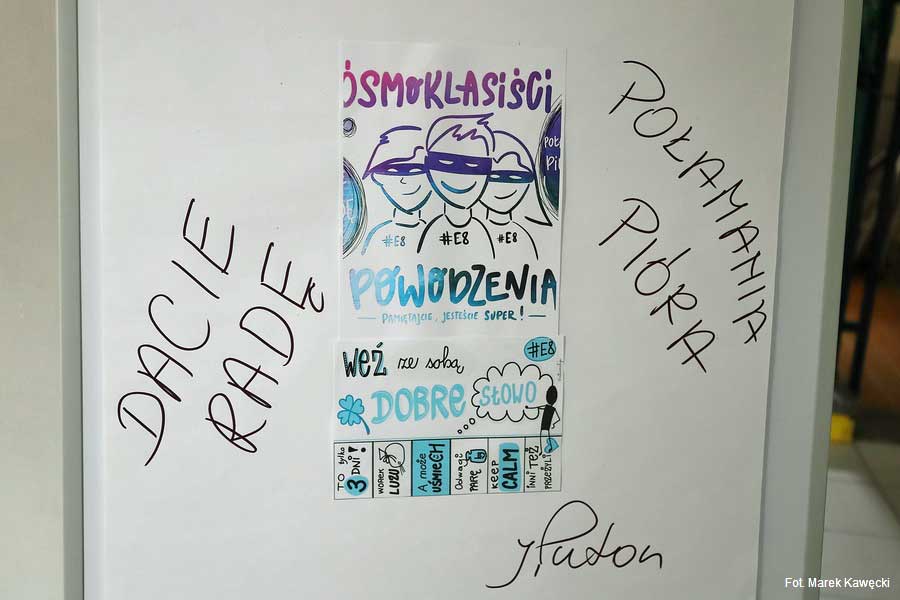 ÓSMOKLASIŚCI
#E8 #E8 #E8
POWODZENIA
PAMIĘTAJCIE, JESTEŚCIE SUPER!
WEŹ ze sobą
#E8
DOBRE SŁOWO
TO tylko 3 DNI!
WOREK LUZU
A może UŚMIECH
Odwagi PARĘ
KEEP CALM
INNI TEŻ PRZEŻYLI
DACIE
RADĘ
POŁAMANIA
PIÓRA
Fot. Marek Kawęcki